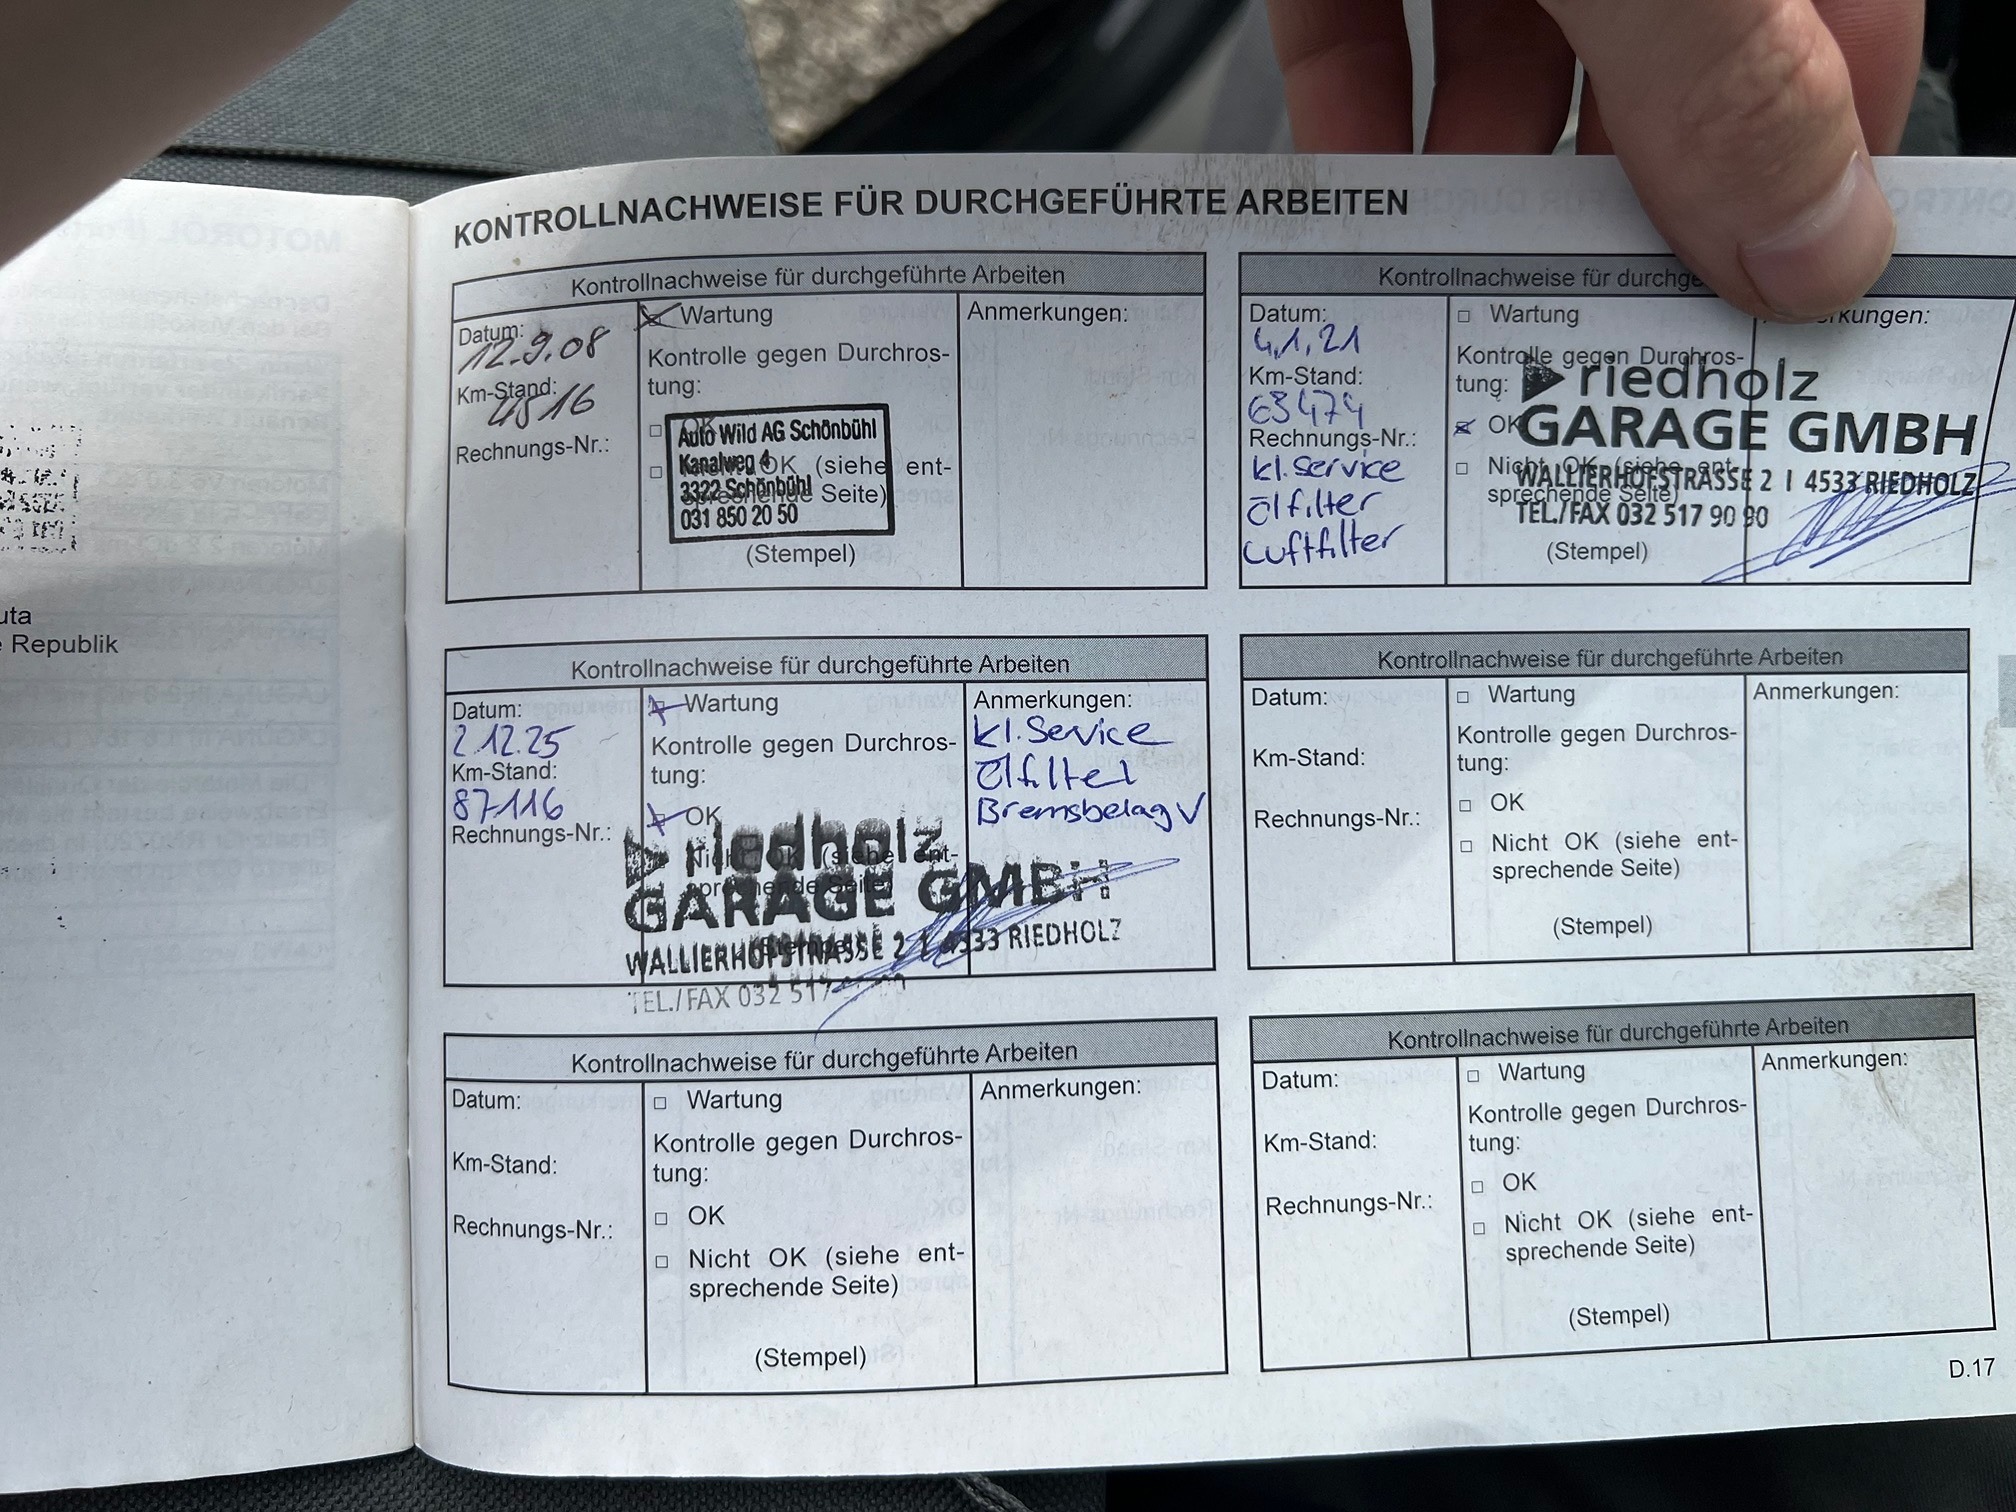 uta
e Republik
KONTROLLNACHWEISE FÜR DURCHGEFÜHRTE ARBEITEN
Kontrollnachweise für durchgeführte Arbeiten
Datum:
12.9.08
Km-Stand:
4516
Rechnungs-Nr.:
Wartung
Kontrolle gegen Durchros-
tung:
OK
Nicht OK (siehe ent-
sprechende Seite)
Auto Wild AG Schönbühl
Kanalweg 4
3322 Schönbühl
031 850 20 50
(Stempel)
Anmerkungen:
Kontrollnachweise für durchge
Datum:
4.1.21
Km-Stand:
63474
Rechnungs-Nr.:
kl. service
ölfilter
Luftfilter
Wartung
Kontrolle gegen Durchros-
tung:
OK
Nicht OK (siehe ent-
sprechende Seite)
(Stempel)
rkungen:
riedholz
GARAGE GMBH
WALLIERHOFSTRASSE 2 I 4533 RIEDHOLZ
TEL./FAX 032 517 90 90
Kontrollnachweise für durchgeführte Arbeiten
Datum:
2.12.25
Km-Stand:
87116
Rechnungs-Nr.:
Wartung
Kontrolle gegen Durchros-
tung:
OK
Nicht OK (siehe ent-
sprechende Seite)
(Stempel)
Anmerkungen:
kl. Service
ölfilter
Bremsbelag V
riedholz
GARAGE GMBH
WALLIERHOFSTRASSE 2 I 4533 RIEDHOLZ
TEL./FAX 032 517
Kontrollnachweise für durchgeführte Arbeiten
Datum:
Km-Stand:
Rechnungs-Nr.:
Wartung
Kontrolle gegen Durchros-
tung:
OK
Nicht OK (siehe ent-
sprechende Seite)
(Stempel)
Anmerkungen:
Kontrollnachweise für durchgeführte Arbeiten
Datum:
Km-Stand:
Rechnungs-Nr.:
Wartung
Kontrolle gegen Durchros-
tung:
OK
Nicht OK (siehe ent-
sprechende Seite)
(Stempel)
Anmerkungen:
Kontrollnachweise für durchgeführte Arbeiten
Datum:
Km-Stand:
Rechnungs-Nr.:
Wartung
Kontrolle gegen Durchros-
tung:
OK
Nicht OK (siehe ent-
sprechende Seite)
(Stempel)
Anmerkungen:
D.17